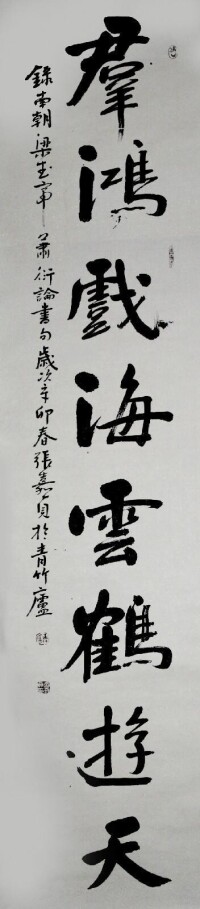 羣鴻戲海雲鶴遊天
錄南朝梁武帝蕭衍論書句歲次辛卯春張嘉貞於青竹廬